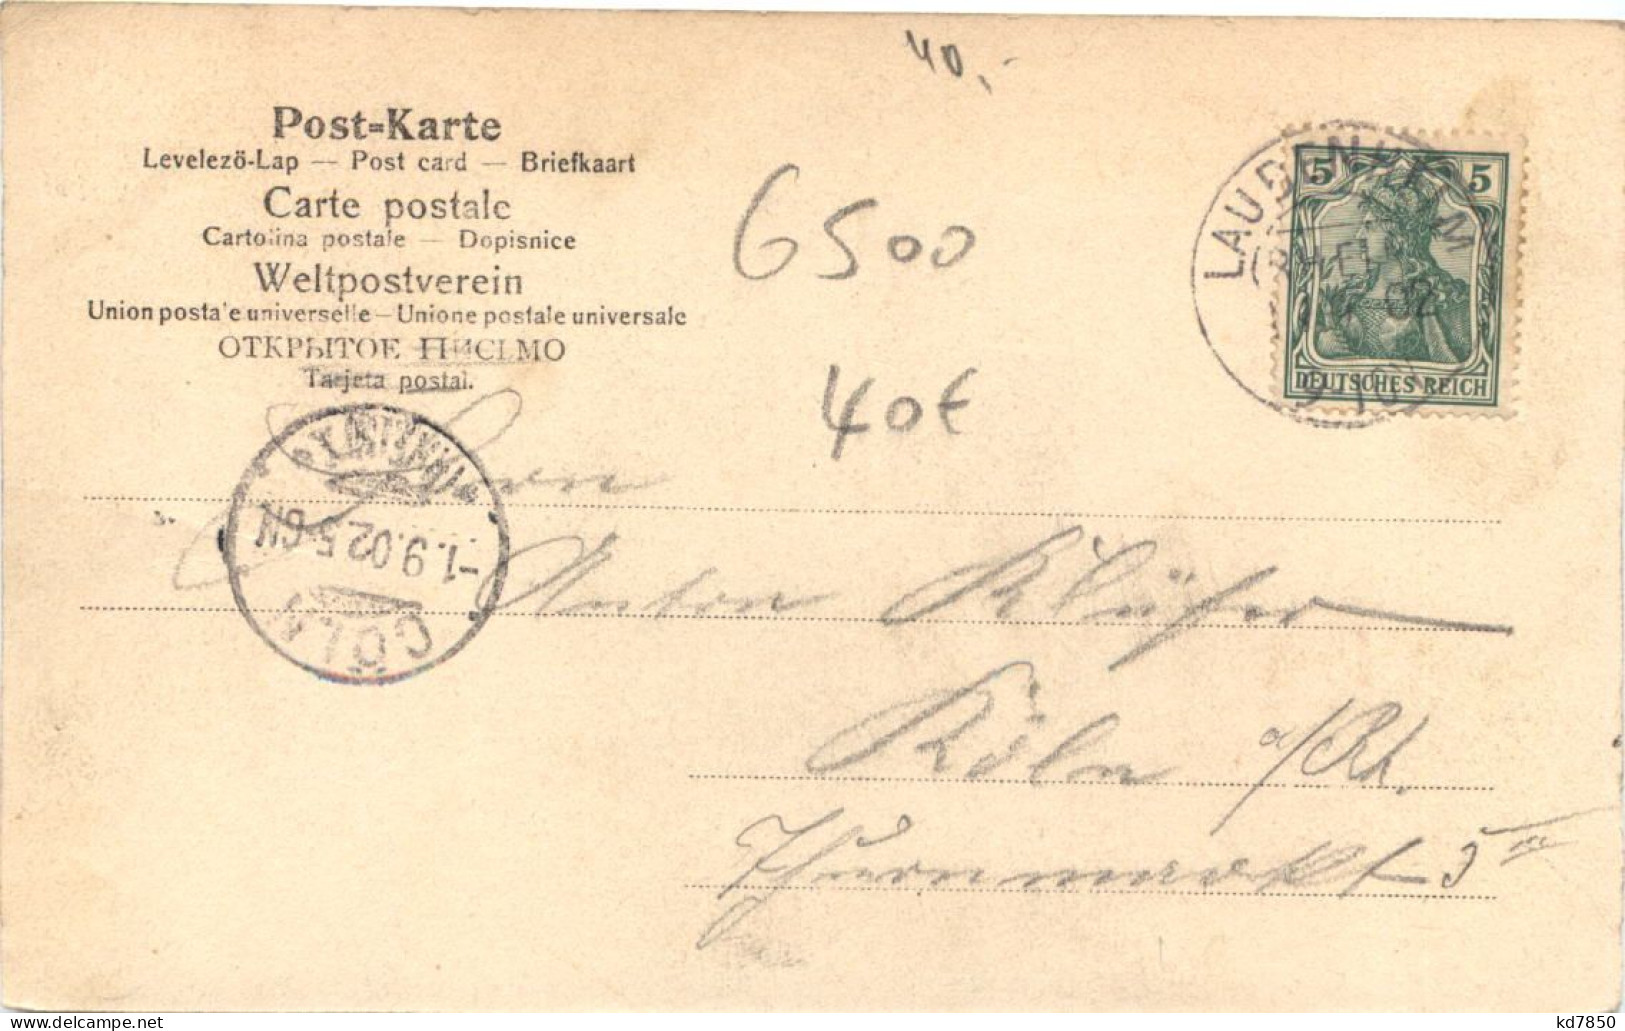 40,-
Post-Karte
Levelezö-Lap — Post card — Briefkaart
Carte postale
Cartolina postale — Dopisnice
Weltpostverein
Union postale universelle — Unione postale universale
ОТКРЫТОЕ ПИСЬМО
Tarjeta postal.
6500
40€
5 5
DEUTSCHES REICH
LAUDENHEIM
(RHEIN
02
-1.9.02.5-6N
CÖLN
Herrn
Anton Klüfer
Köln a/Rh.
Thurnmarkt 5 III
kd7850